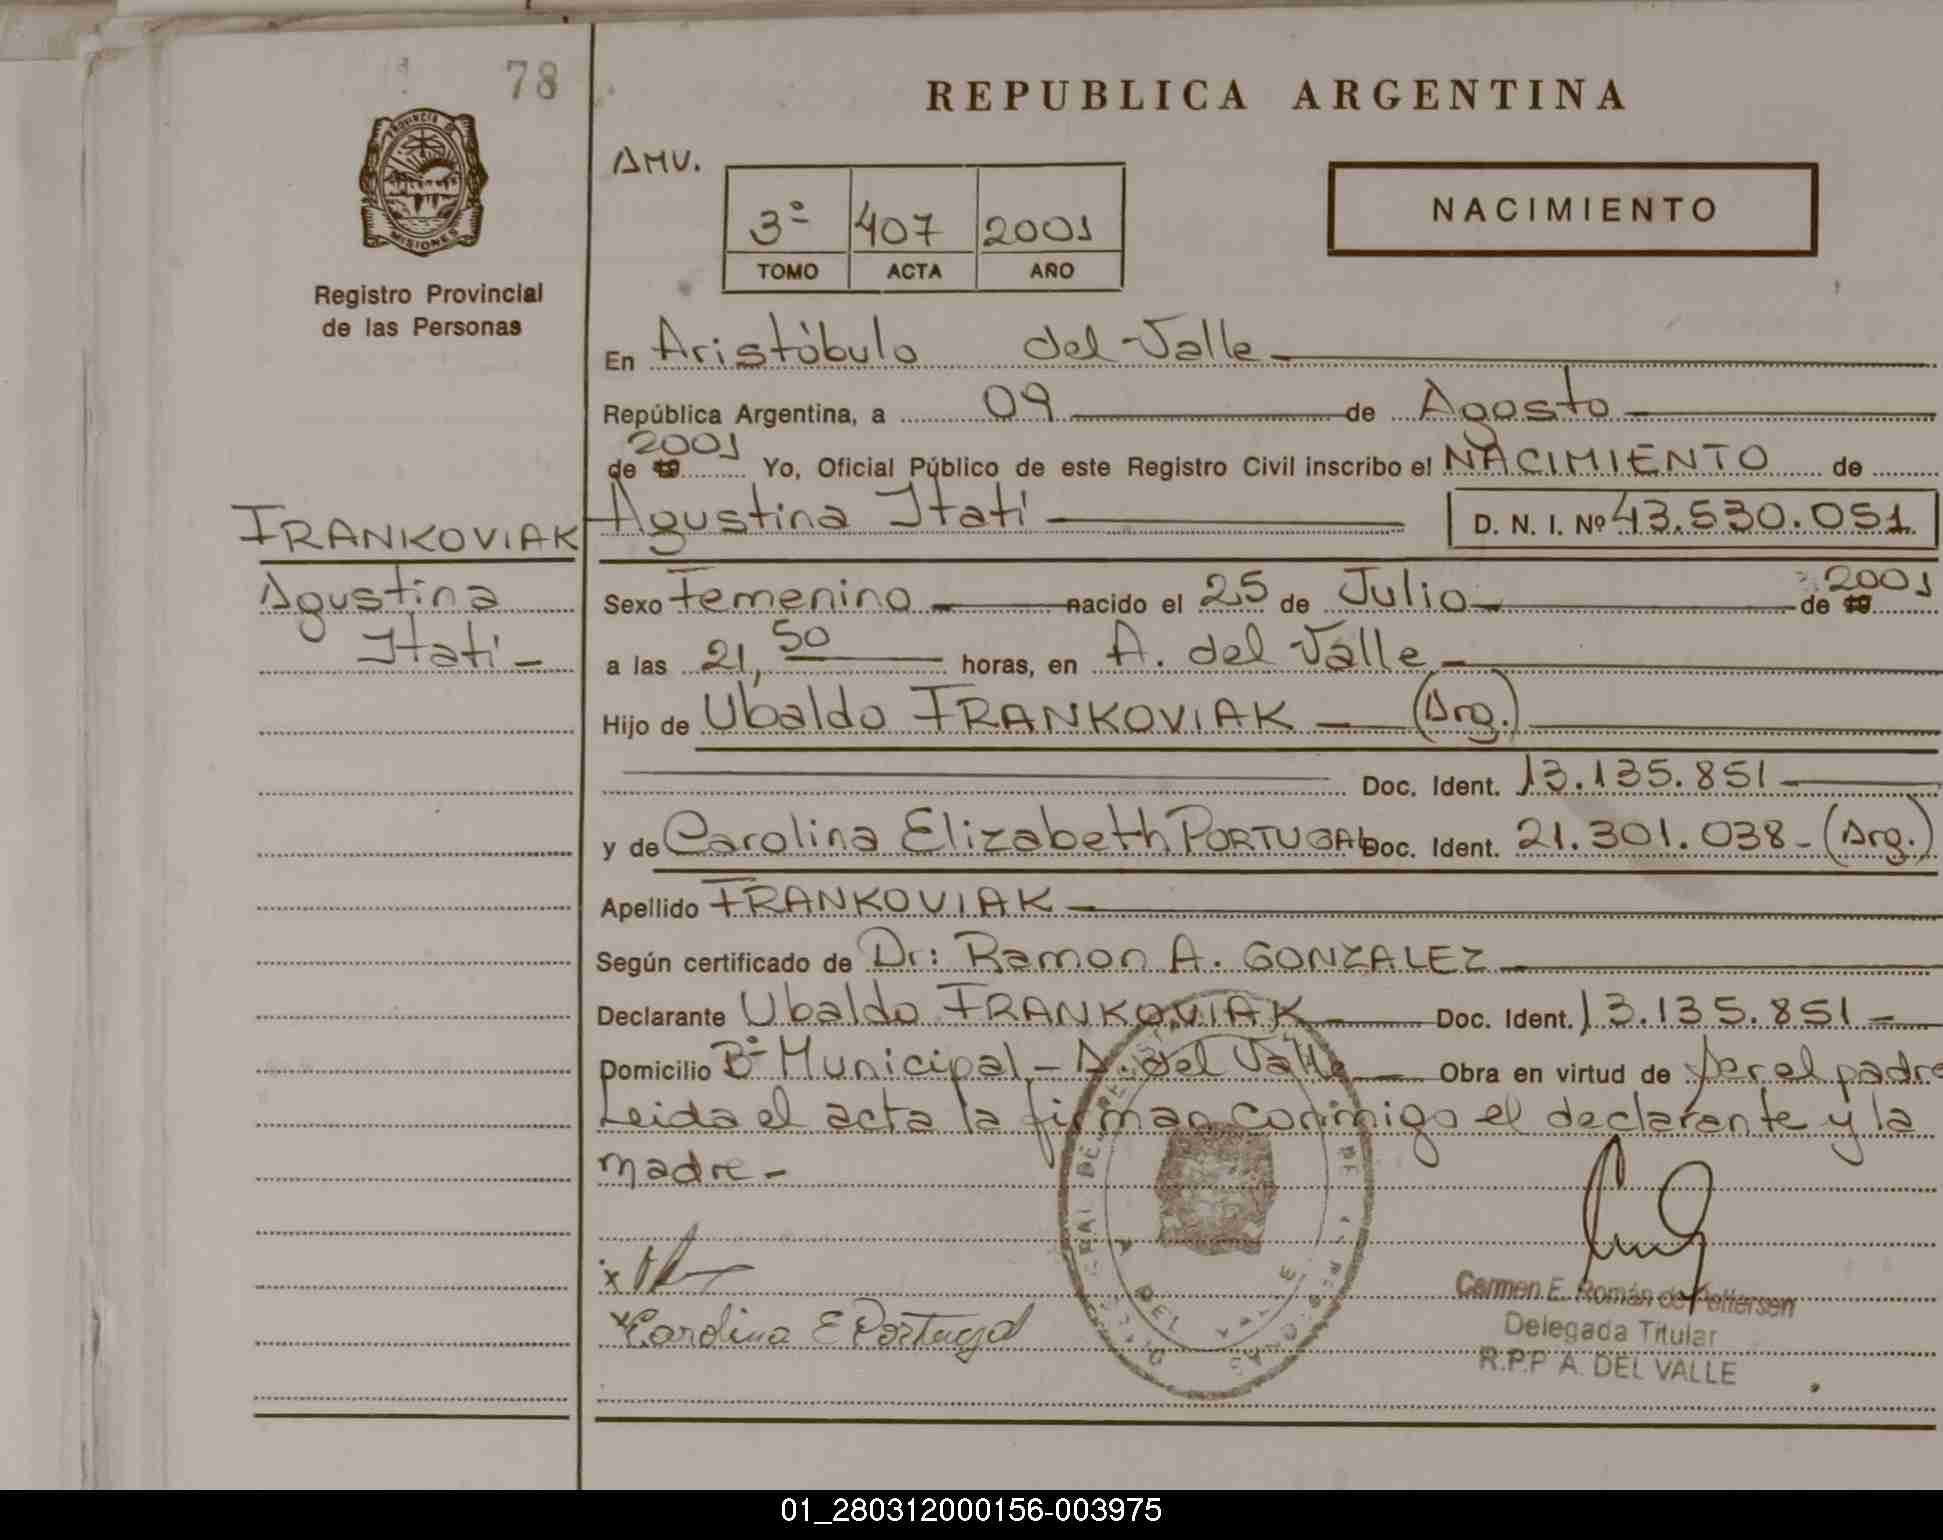 78
REPUBLICA ARGENTINA
AMV.
PROVINCIA DE
MISIONES
3º 407 2001
TOMO ACTA AÑO
NACIMIENTO
Registro Provincial
de las Personas
En Aristóbulo del Valle
República Argentina, a 09 de Agosto
de 19 2001 Yo, Oficial Público de este Registro Civil inscribo el NACIMIENTO de
FRANKOVIAK
Agustina
Itatí
Agustina Itatí D. N. I. Nº 43.530.051
Sexo Femenino nacido el 25 de Julio de 19 2001
a las 21,50 horas, en A. del Valle
Hijo de Ubaldo FRANKOVIAK (Arg.)
Doc. Ident. 13.135.851
y de Carolina Elizabeth PORTUGAL Doc. Ident. 21.301.038 - (Arg.)
Apellido FRANKOVIAK
Según certificado de Dr: Ramon A. GONZALEZ
Declarante Ubaldo FRANKOVIAK Doc. Ident. 13.135.851 -
Domicilio Bº Municipal - A. del Valle Obra en virtud de ser el padre
Leida el acta la firman conmigo el declarante y la
madre -
x
x Carolina E Portugal
Carmen E. Román de Pettersen
Delegada Titular
R.P.P A. DEL VALLE
A DEL VALLE
01_280312000156-003975